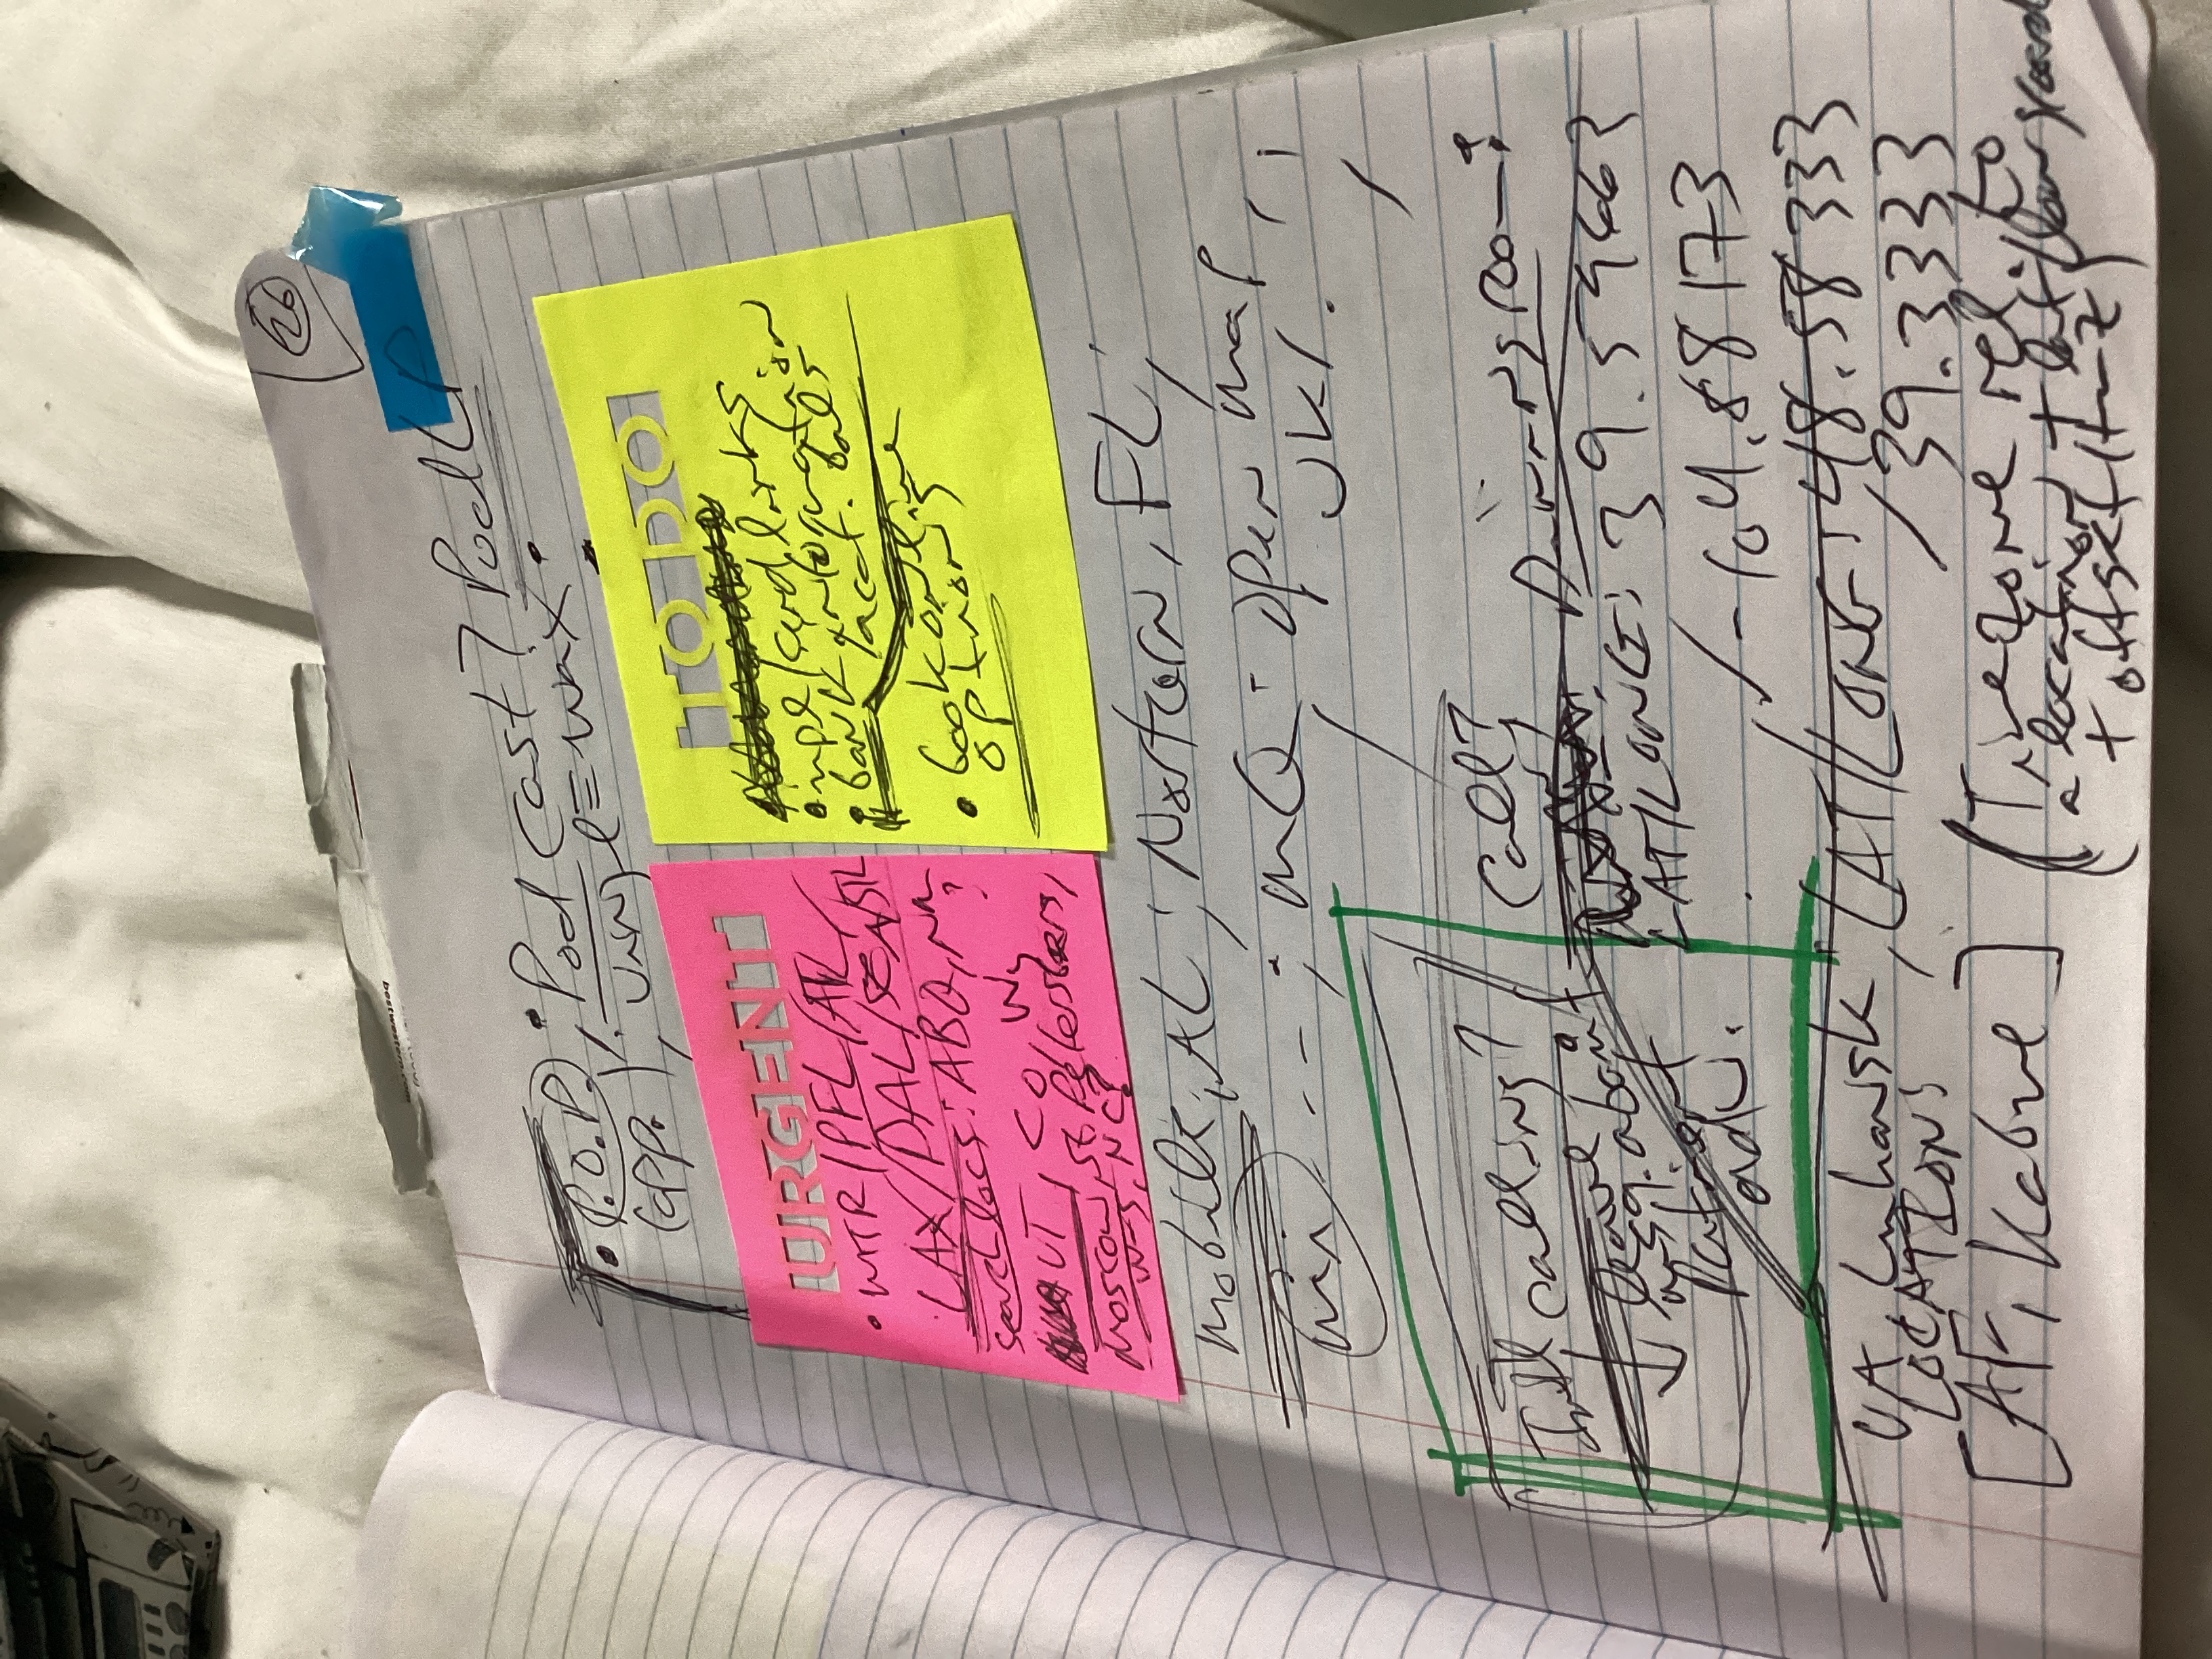 26
bestwestern.com
• P.O.P. ; • Pod Cast? PodLP
(opp.) ; Vinyl = wax •
URGENT
• WTR/PFL/ATL/
LAX/DAL/SEA/STL
search locs: ABQ, NM
?
UT, CO, Wy
Moscow, St. Petersberg,
W-S, NC?
TO DO
• /send links
• bank information
/acct. bals
• book online
options
mobile, AL ; Northern, FL ;
-- ; MQ - open map,
UK/.
Intl calling?
leave
msg. about
Patient
adv.
Call?
Dining Room:
LAT/LONG: 39.59663
/-104.88173
UA, Luhansk ; LAT/LONG: 48.58333
/39.3333
LOCATIONS
[AF, Kabul]
(Timezone rel. to
a location + lat/long coord
+ offset/tmz)